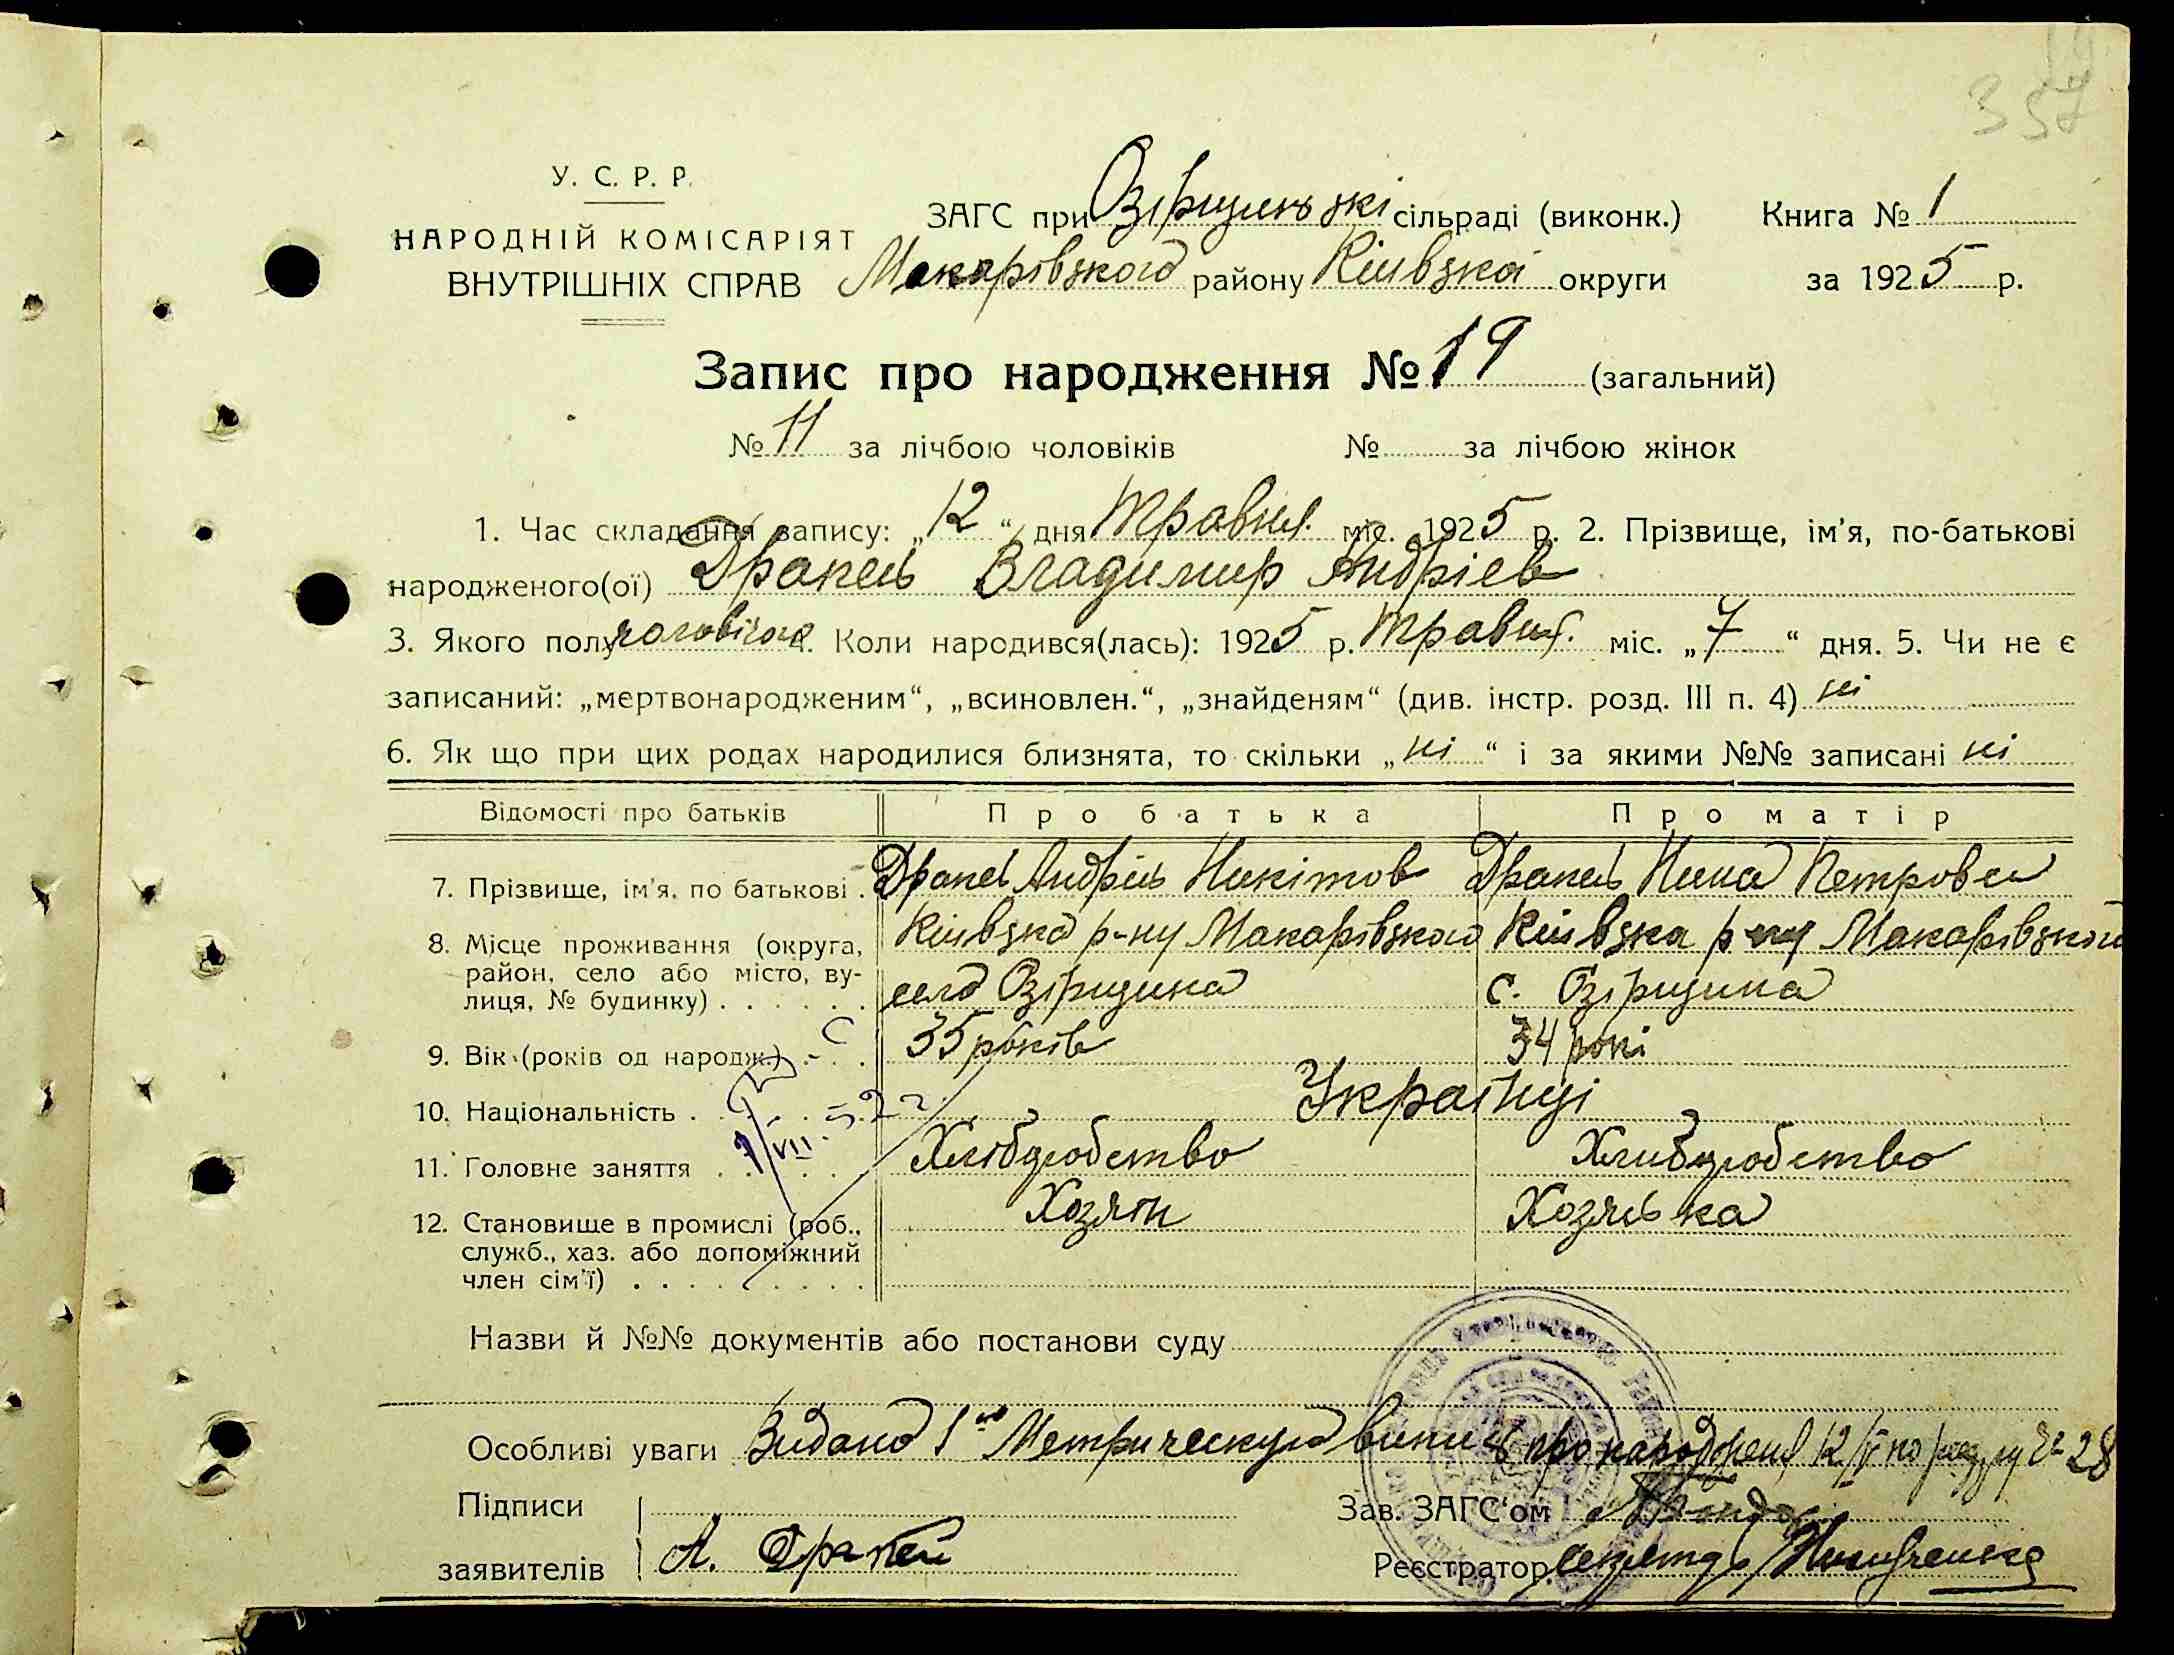 357
У. С. Р. Р.
НАРОДНІЙ КОМІСАРІЯТ
ВНУТРІШНІХ СПРАВ
ЗАГС при Озірщинські сільраді (виконк.) Книга № 1
Макарівского району Киівзкоі округи за 1925 р.
Запис про народження № 19 (загальний)
№ 11 за лічбою чоловіків № за лічбою жінок
1. Час складання запису: „12“ дня Травня міс. 1925 р. 2. Прізвище, ім'я, по-батькові
народженого(ої) Дропей Владимир Андріев
3. Якого полу чоловічого 4. Коли народився(лась): 1925 р. Травня міс. „7“ дня. 5. Чи не є
записаний: „мертвонародженим“, „всиновлен.“, „знайденям“ (див. інстр. розд. III п. 4) ні
6. Як що при цих родах народилися близнята, то скільки „ні“ і за якими №№ записані ні
Відомості про батьків Про батька Про матір
7. Прізвище, ім'я, по батькові . Дропей Андрій Никітов Дропей Нина Петровн
8. Місце проживання (округа, Киівзка р-ну Макарівзкого Киівзка р-ну Макарівзкого
район, село або місто, ву-
лиця, № будинку) . . . . . . село Озірщина с. Озірщина
9. Вік (років од народж.) . . . 35 років 34 рокі
10. Національність . . . . . Українці
7/VII. 52 г.
11. Головне заняття . . . . . Хлібробство Хлибробство
12. Становище в промислі (роб., Хозяїн Хозяйка
служб., хаз. або допоміжний
член сім'ї) . . . . . . . . .
Назви й №№ документів або постанови суду
Особливі уваги Видано 1 Метрическую випис про народженя 12/V по № 28
Підписи
Зав. ЗАГС'ом
заявителів А. Дропей
Реєстратор